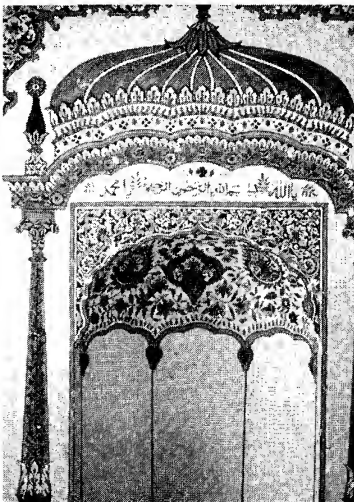 یا اللہ بسم الله الرحمن الرحیم یا محمد